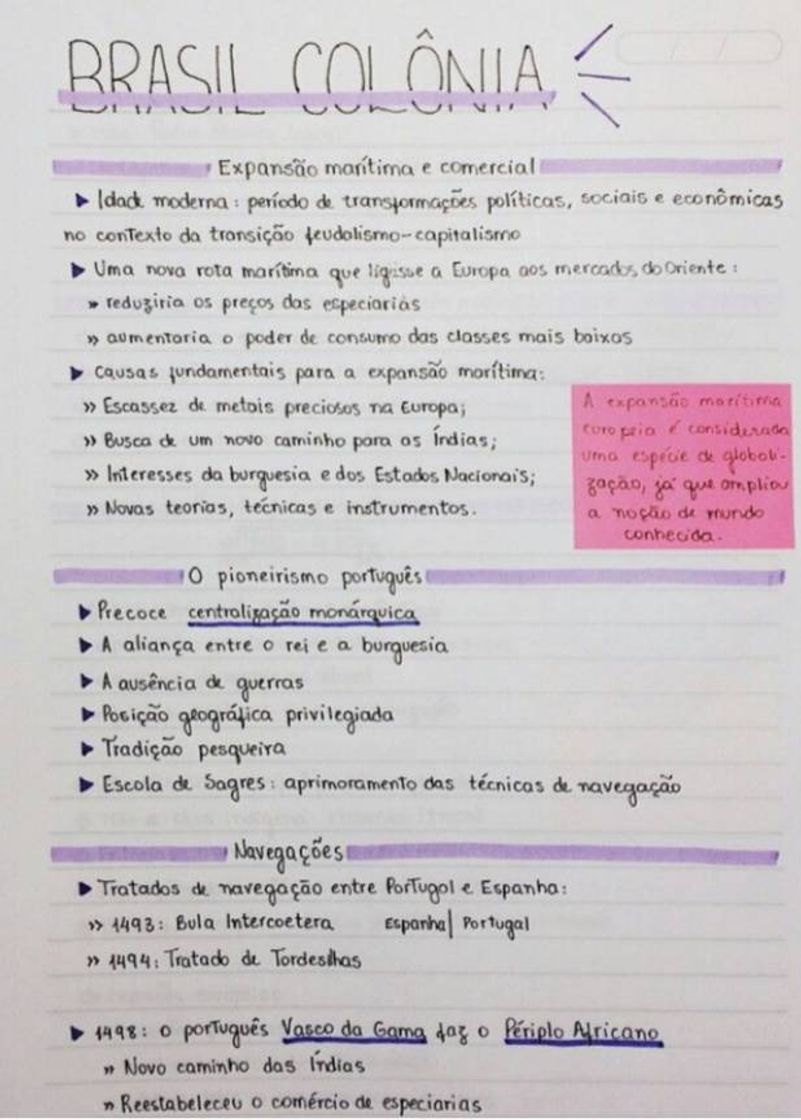 BRASIL COLÔNIA
Expansão marítima e comercial
▶ Idade moderna: período de transformações políticas, sociais e econômicas
no contexto da transição feudalismo-capitalismo
▶ Uma nova rota marítima que ligasse a Europa aos mercados do Oriente:
» reduziria os preços das especiarias
» aumentaria o poder de consumo das classes mais baixas
▶ Causas fundamentais para a expansão marítima:
» Escassez de metais preciosos na Europa;
» Busca de um novo caminho para as Índias;
» Interesses da burguesia e dos Estados Nacionais;
» Novas teorias, técnicas e instrumentos.
A expansão marítima
europeia é considerada
uma espécie de globali-
zação, já que ampliou
a noção de mundo
conhecida.
O pioneirismo português
▶ Precoce centralização monárquica
▶ A aliança entre o rei e a burguesia
▶ A ausência de guerras
▶ Posição geográfica privilegiada
▶ Tradição pesqueira
▶ Escola de Sagres: aprimoramento das técnicas de navegação
Navegações
▶ Tratados de navegação entre Portugal e Espanha:
» 1493: Bula Intercoetera Espanha| Portugal
» 1494: Tratado de Tordesilhas
▶ 1498: o português Vasco da Gama faz o Périplo Africano
» Novo caminho das Índias
» Reestabeleceu o comércio de especiarias